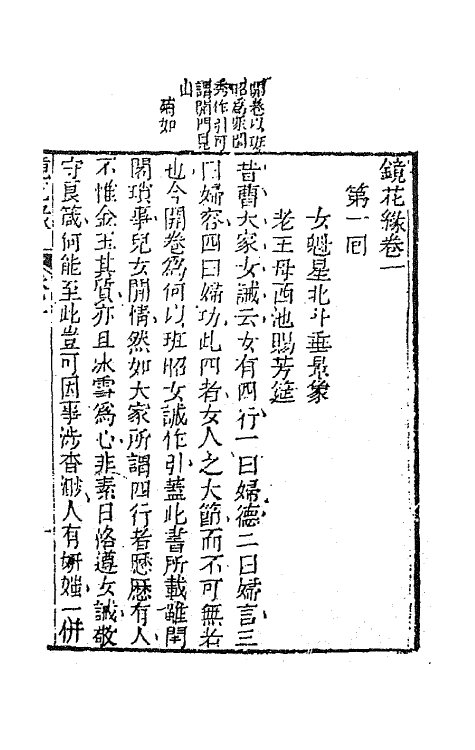 開卷以班
昭爲眾閨
秀作引可
謂開門見
山
蔬如
鏡花緣卷一
第一囘
女魁星北斗垂景象
老王母西池賜芳筵
昔曹大家女誡云女有四行一曰婦德二曰婦言三
曰婦容四曰婦功此四者女人之大節而不可無者
也今開卷爲何以班昭女誡作引蓋此書所載雖閨
閣瑣事兒女閒情然如大家所謂四行者歷歷有人
不惟金玉其質亦且冰雪爲心非素日恪遵女誡敬
守良箴何能至此豈可因事涉杳渺人有妍媸一併